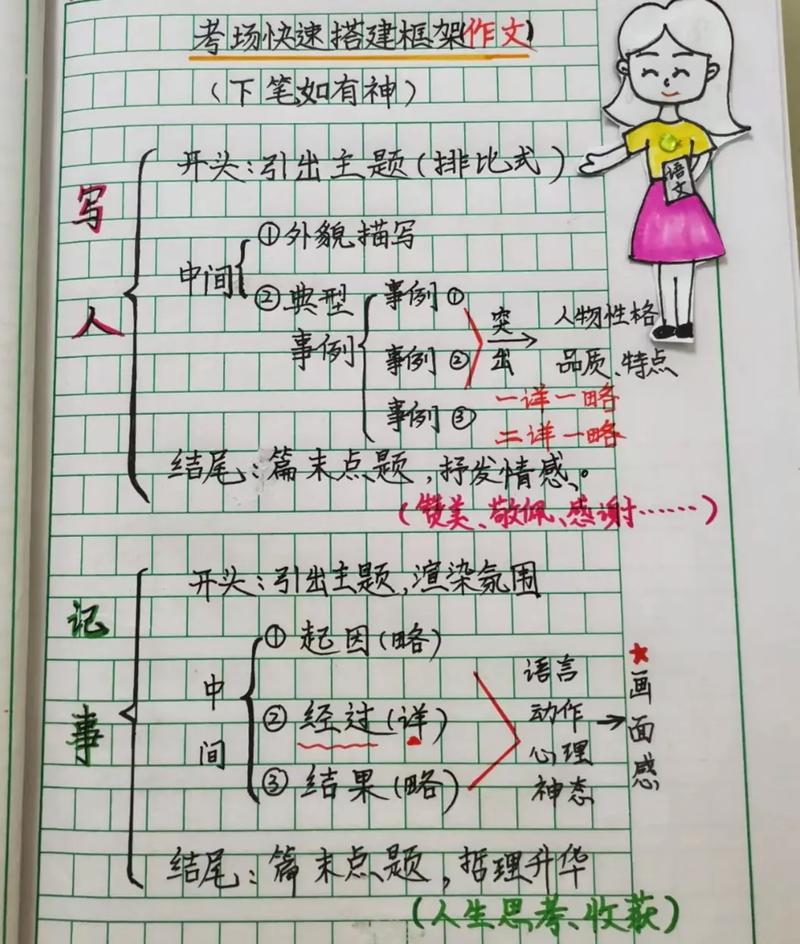 考场快速搭建框架作文)
(下笔如有神)
语文
写人
开头:引出主题(排比式)
中间
①外貌描写
②典型事例
事例①
事例②
事例③
突出
人物性格
品质、特点
一详一略
二详一略
结尾:篇末点题,抒发情感。
(赞美、敬佩、感谢……)
记事
开头:引出主题,渲染氛围
中间
①起因(略)
②经过(详)
③结果(略)
语言
动作
心理
神态
★画面感
结尾:篇末点题,哲理升华
(人生思考、收获)